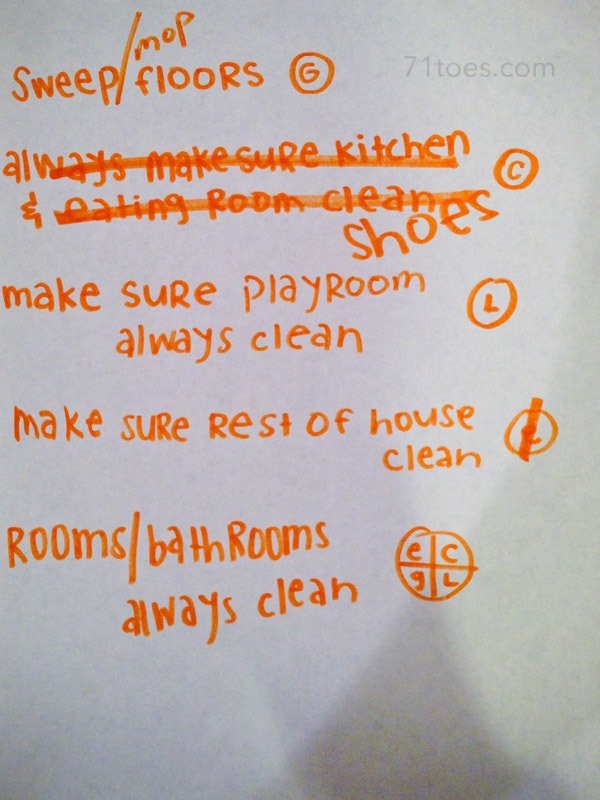 mop
sweep/floors G
71toes.com
always make sure kitchen C
& eating room clean
shoes
make sure playroom L
always clean
make sure rest of house
clean
rooms/bathrooms e C
always clean g L